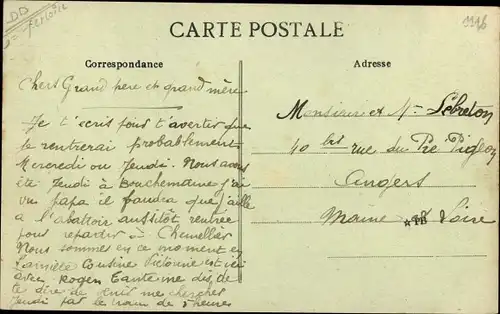 DD
CARTE POSTALE
1196
Correspondance
Adresse
Chers Grand pere et grand mère
Je t'ecris pour t'avertir que
je rentrerai probablement
Mercredi ou Jeudi. Nous avons
été Jeudi à Bouchemaine j'ai
vu papa il faudra que j'aille
a l'abattoir aussitôt rentrée
pour repartir à Chemellier
Nous sommes en ce moment
cousine Victorine est ici
avec Roger Tante me dis de
te dire de venir me chercher
Jeudi par le train de heures
Monsieur et Mme Lebreton
40 bis rue du Pré Pigeon
Angers
Maine & Loire